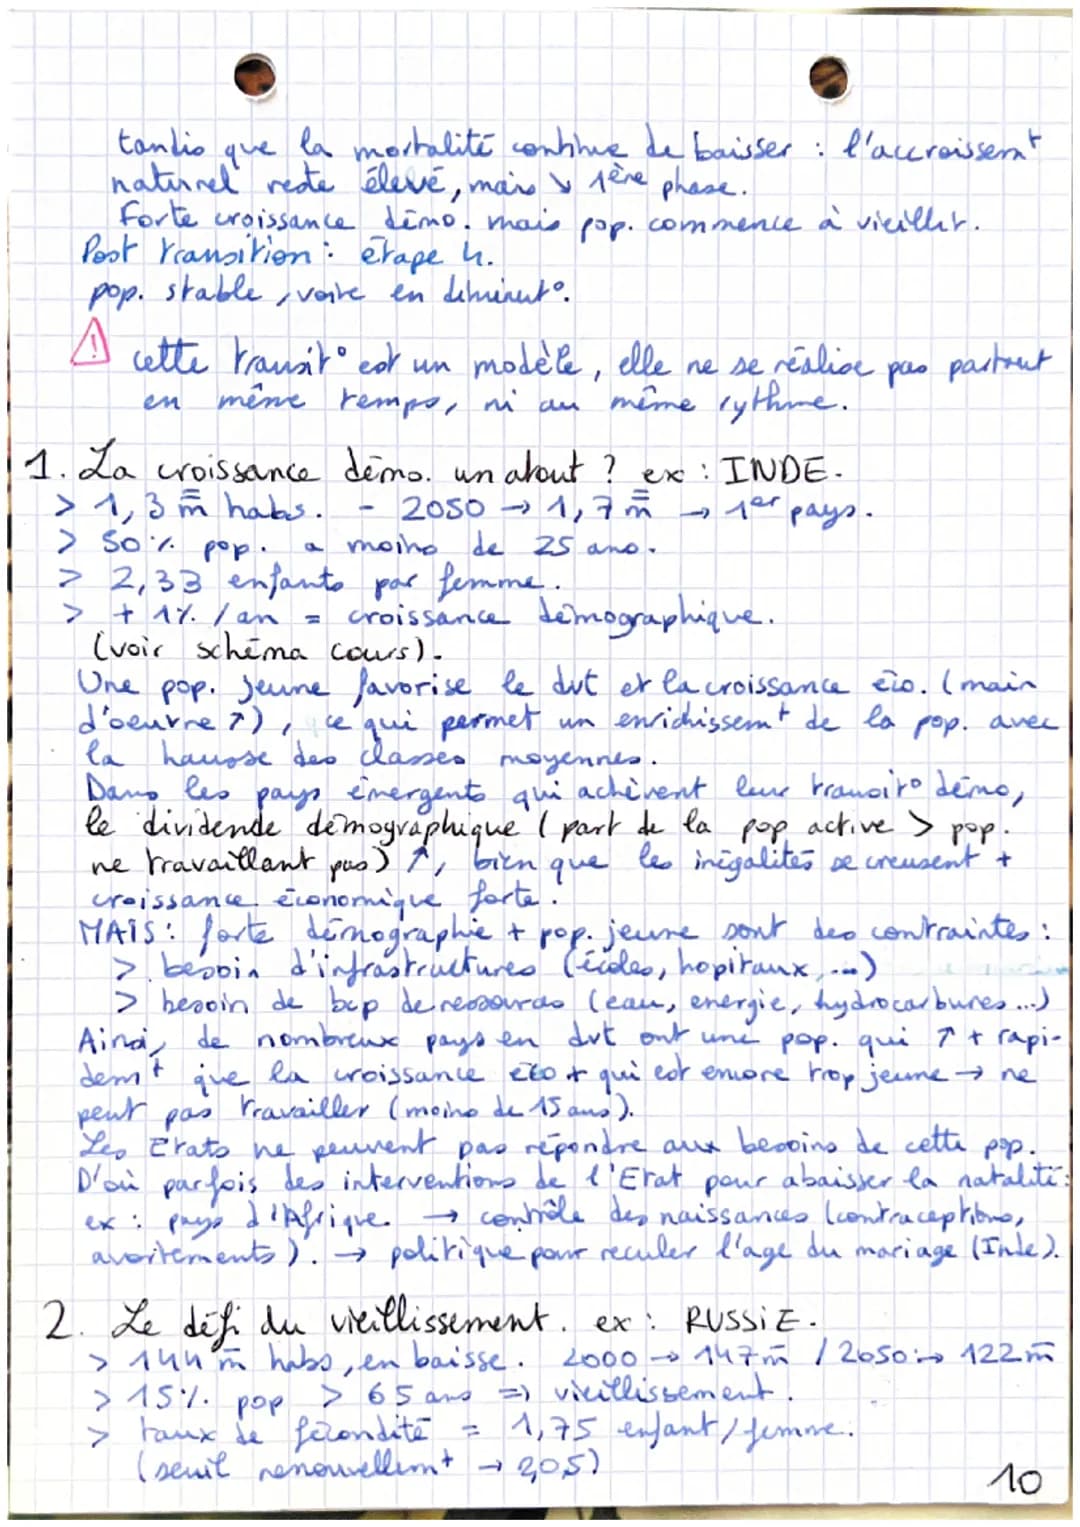 tandis que la mortalité continue de baisser : l'accroissemt
naturel reste élevé, mais ↘ 1ère phase.
Forte croissance démo. mais pop. commence à vieillir.
Post transition : étape 4.
pop. stable, voire en diminut°.
! cette transit° est un modèle, elle ne se réalise pas partout
en même temps, ni au même rythme.
1. La croissance démo. un atout ? ex : INDE.
> 1,3 m̿ habs. - 2050 → 1,7 m̿ → 1er pays.
> 50% pop. a moins de 25 ans.
> 2,33 enfants par femme.
> + 1% / an = croissance démographique.
(voir schéma cours).
Une pop. jeune favorise le dvt et la croissance éco. (main
d'oeuvre ↗), ce qui permet un enrichissemt de la pop. avec
la hausse des classes moyennes.
Dans les pays émergents qui achèvent leur transit° démo,
le dividende démographique (part de la pop active > pop.
ne travaillant pas) ↗, bien que les inégalités se creusent +
croissance économique forte.
MAIS : forte démographie + pop. jeune sont des contraintes :
> besoin d'infrastructures (écoles, hopitaux, ...)
> besoin de bcp de ressources (eau, energie, hydrocarbures ...)
Ainsi, de nombreux pays en dvt ont une pop. qui ↗ + rapi-
demt que la croissance éco + qui est encore trop jeune → ne
peut pas travailler (moins de 15 ans).
Les Etats ne peuvent pas répondre aux besoins de cette pop.
D'où parfois des interventions de l'Etat pour abaisser la natalité :
ex : pays d'Afrique. → contrôle des naissances (contraceptions,
avortements). → politique pour reculer l'age du mariage (Inde).
2. Le défi du vieillissement. ex : RUSSIE.
> 144 m̄ habs, en baisse. 2000 → 147 m̄ / 2050 : → 122 m̄
> 15% pop > 65 ans => vieillissement.
> taux de fécondité = 1,75 enfant / femme.
(seuil renouvellemt → 2,05)
10